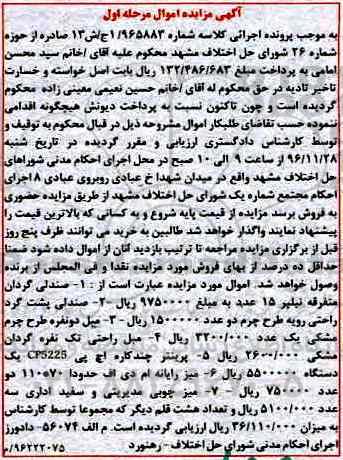 آگهی مزایده اموال مرحله اول
به موجب پرونده اجرائی کلاسه شماره ۹۶۵۸۸۳/۱ج/ش۱۳ صادره از حوزه
شماره ۲۶ شورای حل اختلاف مشهد محکوم علیه آقای /خانم سید محسن
امامی به پرداخت مبلغ ۱۳۲/۴۸۶/۶۸۳ ریال بابت اصل خواسته و خسارت
تاخیر تادیه در حق محکوم له آقای /خانم حسین نعیمی معینی زاده محکوم
گردیده است و چون تاکنون نسبت به پرداخت دیونش هیچگونه اقدامی
ننموده حسب تقاضای طلبکار اموال مشروحه ذیل در قبال محکوم به توقیف و
توسط کارشناس دادگستری ارزیابی و مقرر گردیده در تاریخ شنبه
۹۶/۱۱/۲۸ از ساعت ۹ الی ۱۰ صبح در محل اجرای احکام مدنی شوراهای
حل اختلاف مشهد واقع در میدان شهدا خ عبادی روبروی عبادی ۸ اجرای
احکام مجتمع شماره یک شورای حل اختلاف مشهد از طریق مزایده حضوری
به فروش برسد مزایده از قیمت پایه شروع و به کسانی که بالاترین قیمت را
پیشنهاد نمایند واگذار خواهد شد طالبین به خرید می توانند ظرف پنج روز
قبل از برگزاری مزایده مراجعه تا ترتیب بازدید آنان از اموال داده شود ضمنا
حداقل ده درصد از بهای فروش مورد مزایده نقدا و فی المجلس از برنده
وصول خواهد شد. اموال مورد مزایده عبارت است از : ۱- صندلی گردان
متفرقه نیلپر ۱۵ عدد به مبلغ ۹۷۵۰۰۰۰ ریال -۲- صندلی پشت گرد
راحتی رویه طرح چرم دو عدد ۱۵۰۰۰۰۰ ریال - ۳- مبل دونفره طرح چرم
مشکی یک عدد ۳۲۰۰/۰۰۰ ریال ۴- مبل راحتی تک نفره گردان
مشکی ۲۶۰۰/۰۰۰ ریال ۵- پرینتر چندکاره اچ پی CP5225 یک
دستگاه ۵۵۰۰۰۰۰ ریال - ۶- میز رایانه ام دی اف حدودا ۷۰*۱۱۰ دو
عدد ریال - ۷- میز چوبی مدیریتی و سفید اداری سه
عدد ۵۱۰۰/۰۰۰ ریال و تعداد هشت قلم دیگر که مجموعا توسط کارشناس
به میزان ۳۶/۱۱۰/۰۰۰ ریال ارزیابی گردیده است. م الف ۵۶۰۷۴- دادورز
اجرای احکام مدنی شورای حل اختلاف - رهنورد ۹۶۲۲۲۰۷۵/